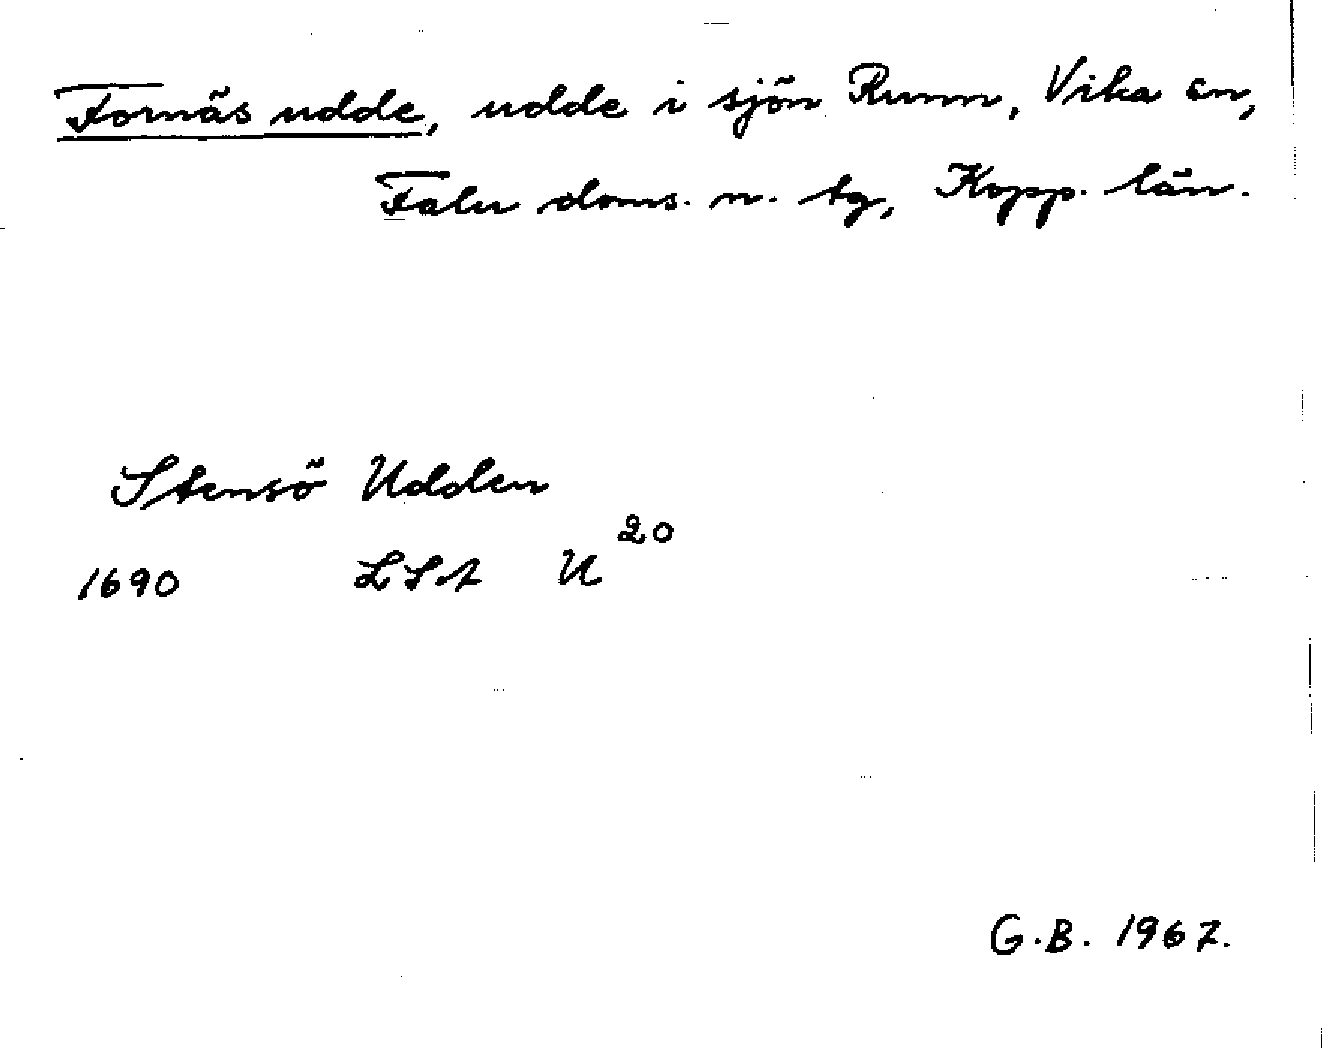 Fornäs udde, udde i sjön Runn, Vika sn,
Falu doms. n. tg, Kopp. län.
Stensö Udden
1690 LSA U²⁰
G.B. 1967.